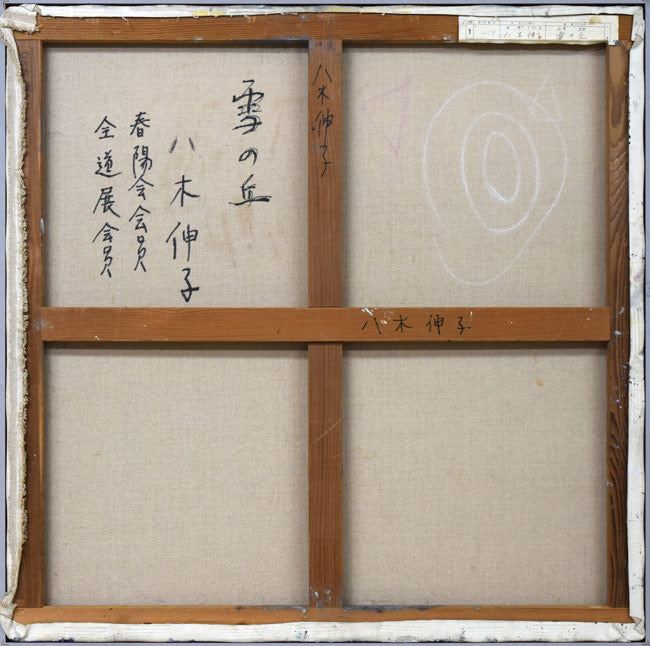 雪の丘
八木伸子
春陽会会員
全道展会員
八木伸子
八木伸子
1
八木伸子
雪の丘